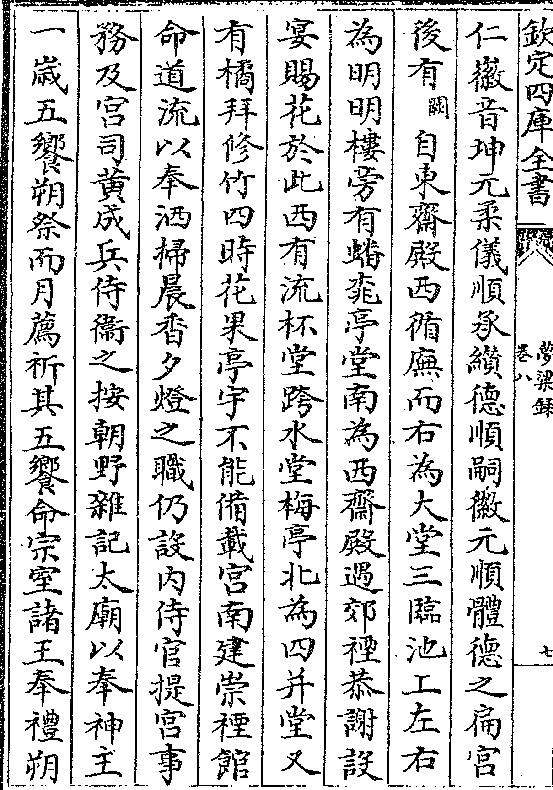 欽定四庫全書
夢粱錄
卷八
七
仁徽音坤元柔儀順承纘德順嗣徽元順體德之扁宮
後有闕自東齋殿西循廡而右為大堂三臨池上左右
為明明樓旁有蟠桃亭堂南為西齋殿遇郊禋恭謝設
宴賜花於此西有流杯堂跨水堂梅亭北為四并堂又
有橘拜修竹四時花果亭宇不能備載宮南建崇禋館
命道流以奉洒掃晨香夕燈之職仍設內侍官提宮事
務及宮司黃成兵侍衞之按朝野雜記太廟以奉神主
一歲五饗朔祭而月薦祈其五饗命宗室諸王奉禮朔